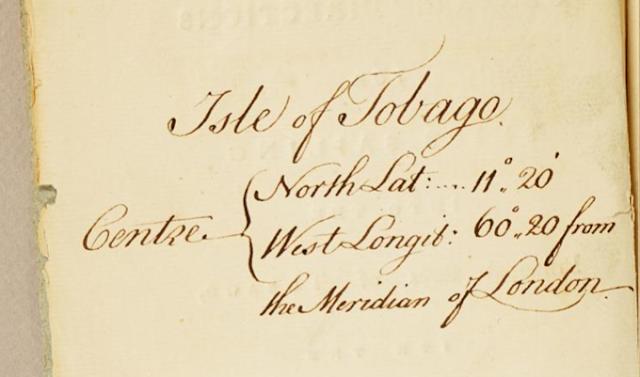 Isle of Tobago.
North Lat: .... 11°.. 20'
Centre
West Longit: 60°.. 20 from
the Meridian of London.